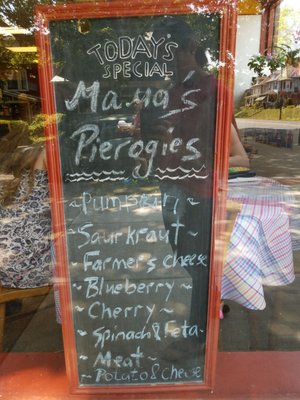 TODAY'S
SPECIAL
Mama's
Pierogies
~Pumpkin~
~Saurkraut~
~Farmer's cheese
~Blueberry~
~Cherry~
~Spinach & Feta~
~Meat~
~Potato & Cheese